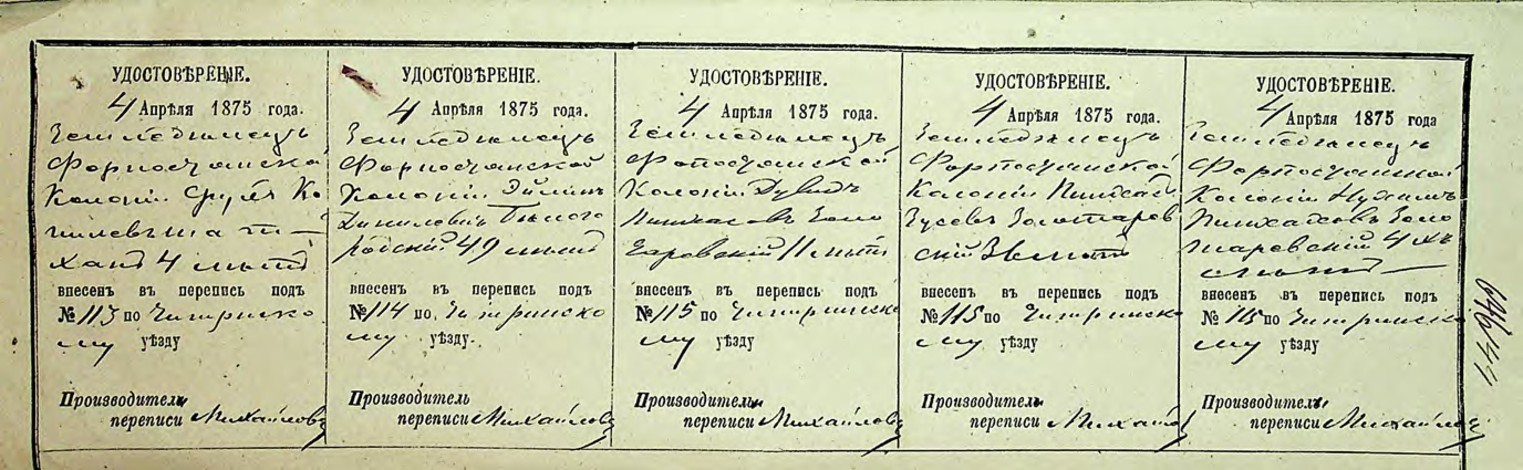 УДОСТОВѢРЕНІЕ.
4 Апрѣля 1875 года.
Земледѣлецъ
Форпостянской
Колоніи Сруль Ко
4 лѣтъ
внесенъ въ перепись подъ
№ 113 по Чигиринско
му уѣзду
Производитель
переписи Михайловъ
УДОСТОВѢРЕНІЕ.
4 Апрѣля 1875 года.
Земледѣлецъ
Форпостянской
Колоніи
Бѣлого
родскій 49 лѣтъ
внесенъ въ перепись подъ
№ 114 по Чигиринско
му уѣзду.
Производитель
переписи Михайловъ
УДОСТОВѢРЕНІЕ.
4 Апрѣля 1875 года.
Земледѣлецъ
Фопостянской
Колоніи Дувидъ
Пинхасовъ Золо
таровскій 11 лѣтъ
внесенъ въ перепись подъ
№ 115 по Чигиринско
му уѣзду
Производитель
переписи Михайловъ
УДОСТОВѢРЕНІЕ.
4 Апрѣля 1875 года.
Земледѣлецъ
Форпостянской
Колоніи Пинхасъ
Зусевъ Золотарев
скій лѣтъ
внесенъ въ перепись подъ
№ 115 по Чигиринско
му уѣзду
Производитель
переписи Михайло
УДОСТОВѢРЕНІЕ.
4 Апрѣля 1875 года
Земледѣлецъ
Форпостянской
Колоніи Нухимъ
Пинхасовъ Золо
таровскій 4 хъ
лѣтъ
внесенъ въ перепись подъ
№ 115 по Чигиринско
му уѣзду
Производитель
переписи Михайлов